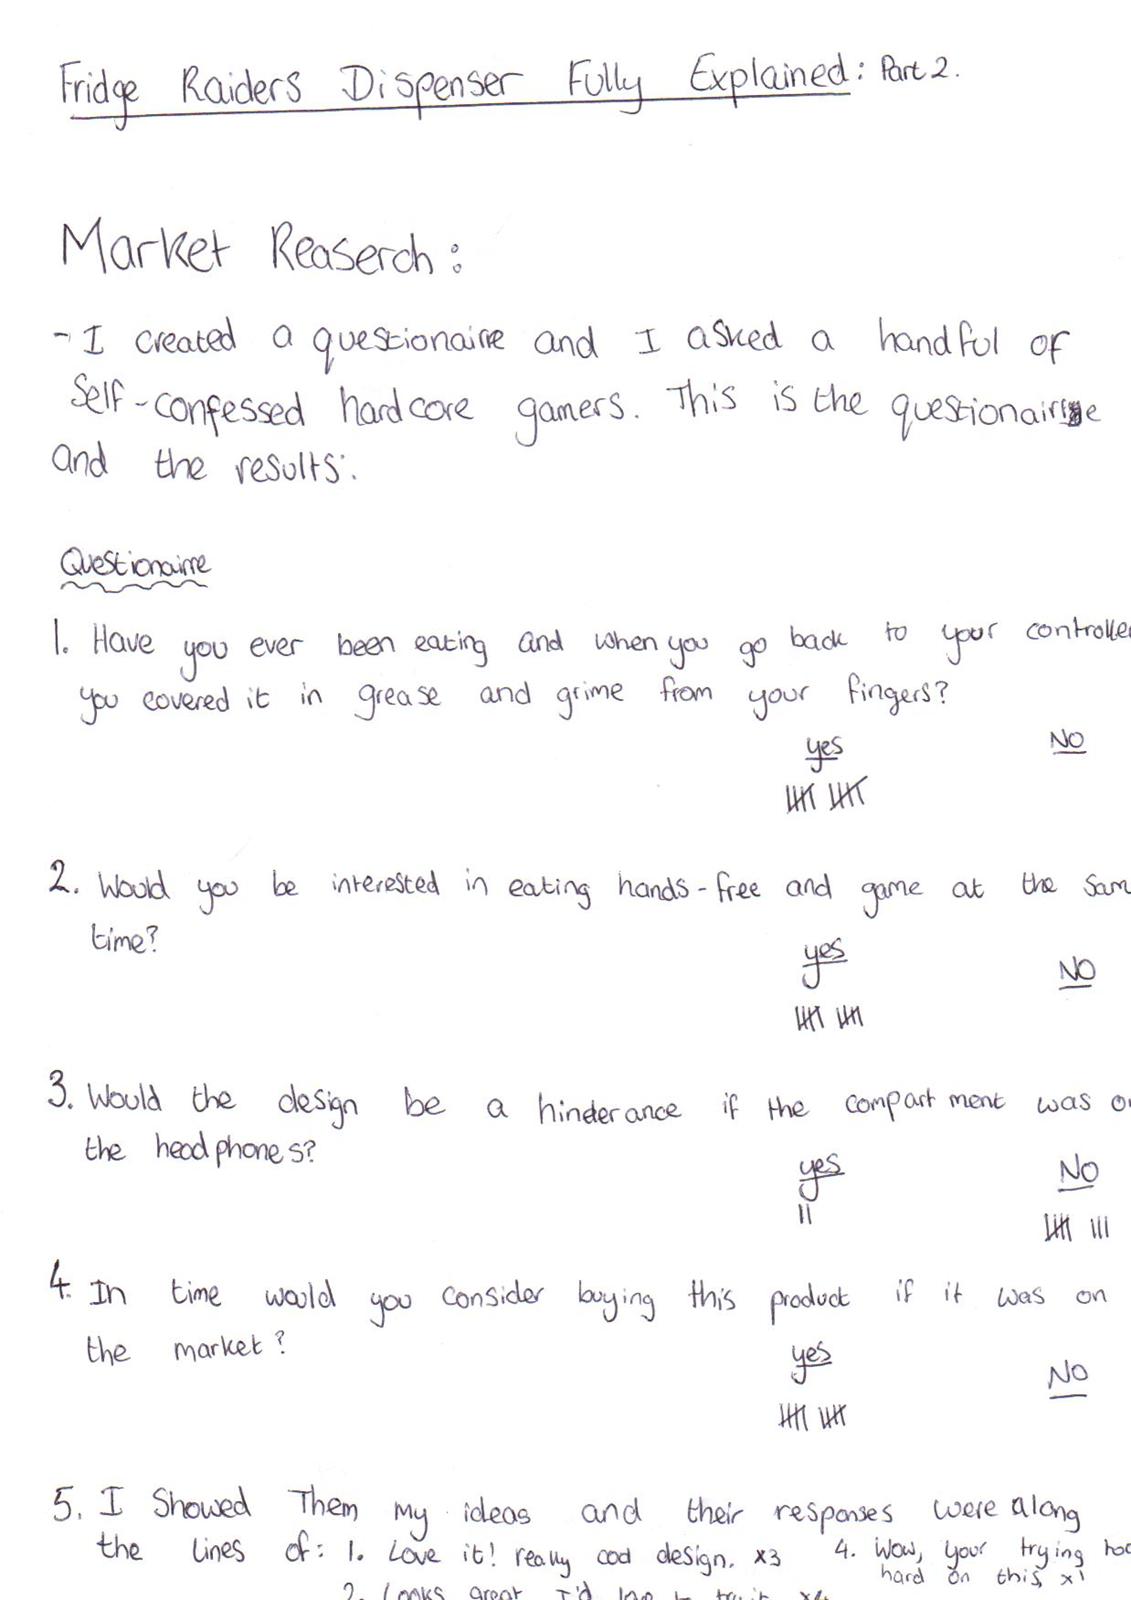 Fridge Raiders Dispenser Fully Explained: Part 2.
Market Reaserch:
- I created a questionaire and I asked a handful of
Self-confessed hardcore gamers. This is the questionaire
and the results:
Questionaire
1. Have you ever been eating and when you go back to your controller
you covered it in grease and grime from your fingers?
yes NO
2. Would you be interested in eating hands-free and game at the Sam
time?
yes NO
3. Would the design be a hinderance if the compartment was on
the headphones?
yes NO
4. In time would you consider buying this product if it was on
the market?
yes NO
5. I Showed Them my ideas and their responses were along
the lines of: 1. Love it! really cool design. x3 4. Wow, your trying
hard on this, x1
2. Looks great I'd